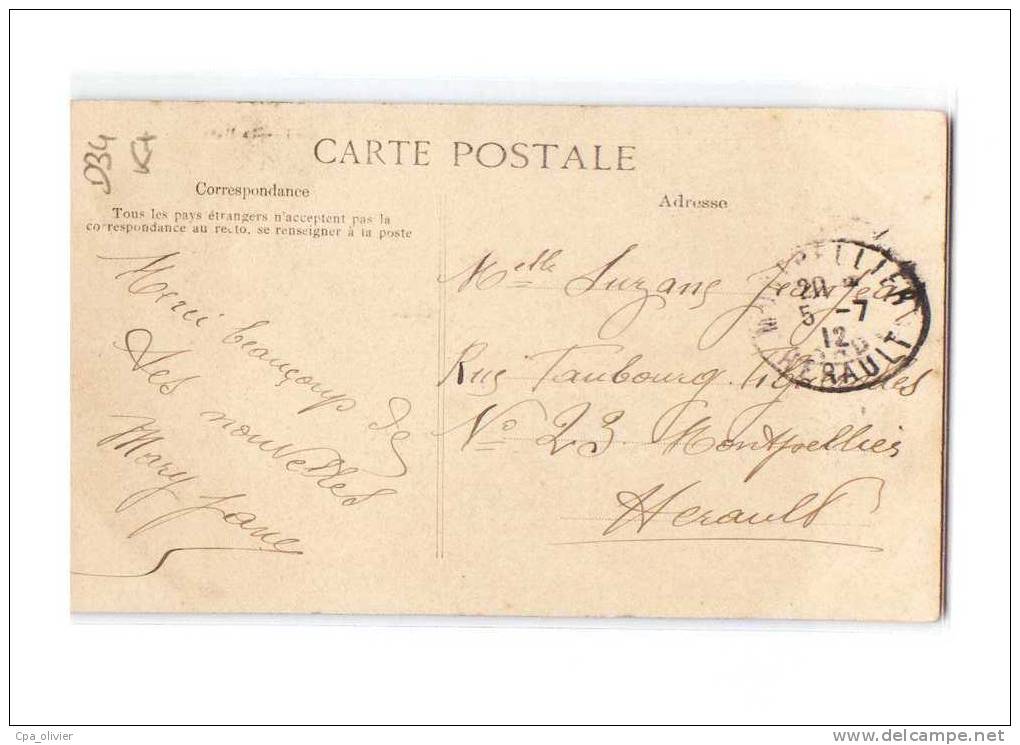 D34
CARTE POSTALE
Correspondance
Tous les pays étrangers n'acceptent pas la
correspondance au recto, se renseigner à la poste
Adresse
Merci beaucoup de
tes nouvelles
Mary Jane
Melle Suzane
Rue Faubourg
No 23 Montpellier
Herault
MONTPELLIER
20
5 -7
12
HERAULT
Cpa_olivier
www.delcampe.net